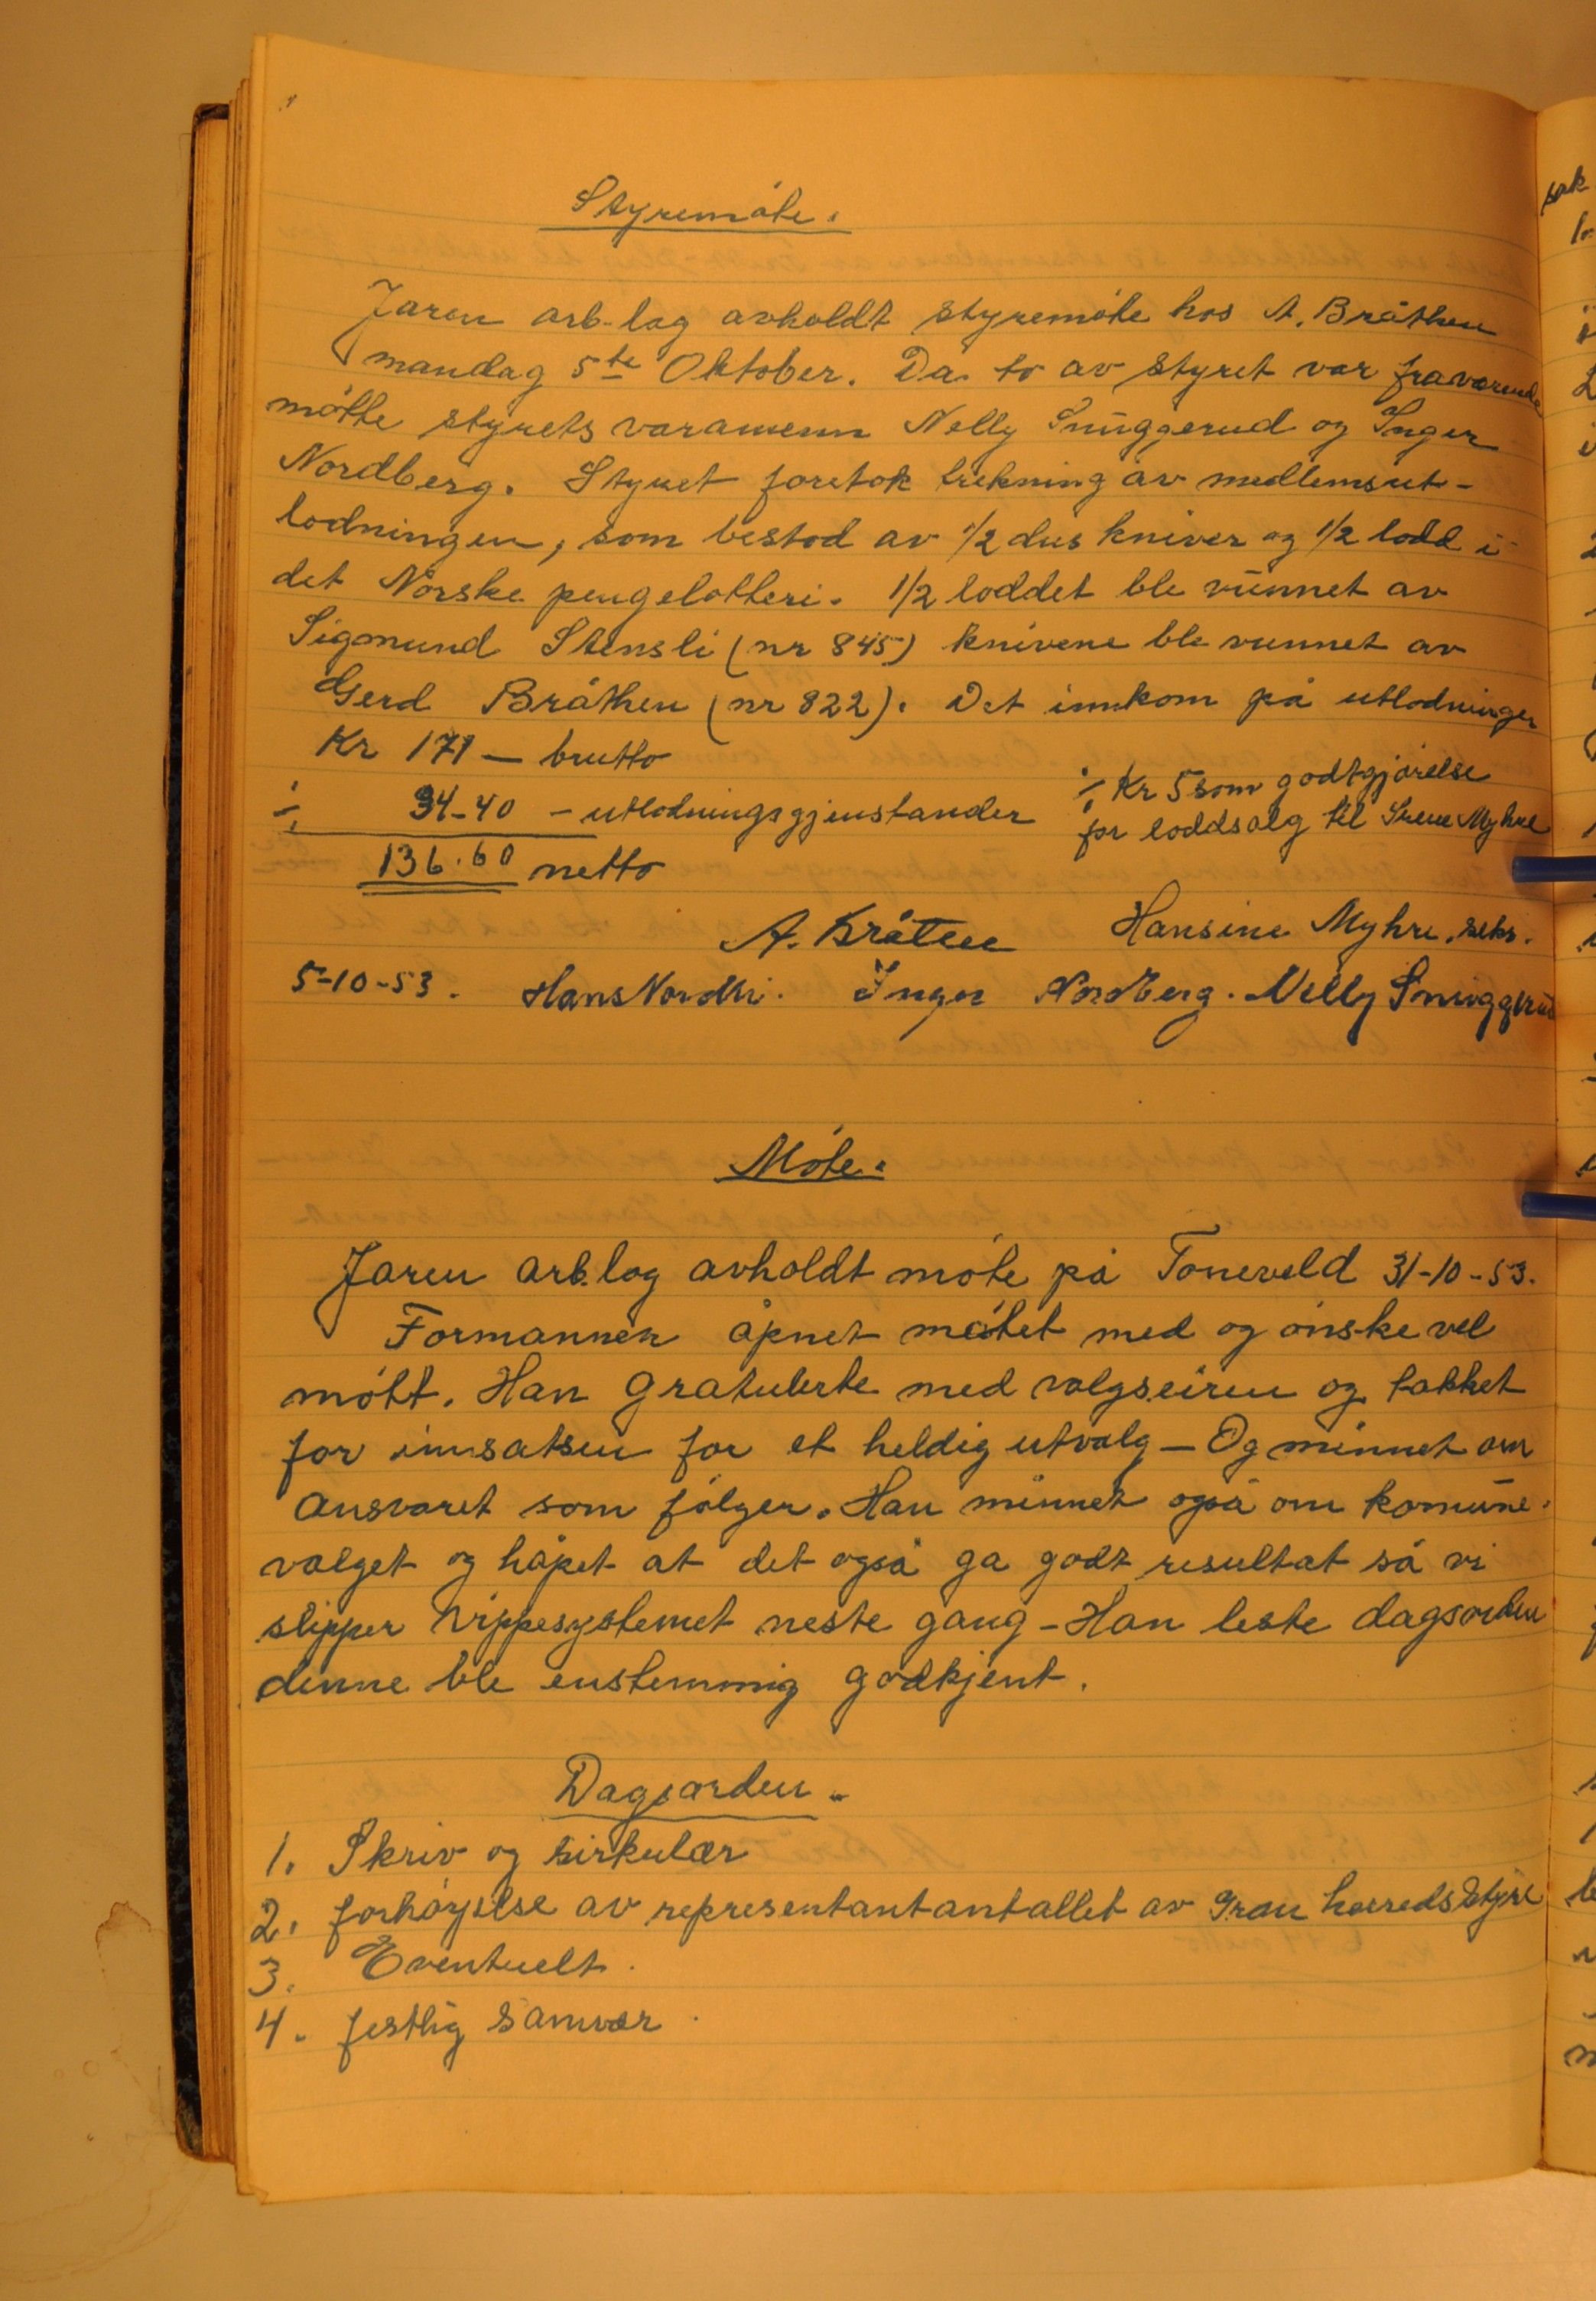 Styremöte.
Jaren arb-lag avholdt styremöte hos A. Bråthen
mandag 5te Oktober. Da to av styret var fraværende
mötte styrets varamenn Nelly Snuggerud og Inger
Nordberg. Styret foretok trekning av medlemsut-
lodningen, som bestod av 1/2 dus kniver og 1/2 lodd i
det Norske pengelotteri. 1/2 loddet ble vunnet av
Sigmund Stensli (nr 845) knivene ble vunnet av
Gerd Bråthen (nr 822). Det innkom på utlodningen
Kr 171 — brutto
÷ 34-40 - utlodningsgjenstander ÷ Kr 5 som godtgjörelse
for loddsalg til Irene Myhre
136.60 netto
A. Bråten Hansine Myhre, sekr.
5-10-53. Hans Nordli. Inger Nordberg. Nelly Snuggerud
Möte.
Jaren arb.lag avholdt möte på Toneveld 31-10-53.
Formannen åpnet mötet med og önske vel
mött. Han gratulerte med valgseiren og takket
for innsatsen for et heldig utvalg - Og minnet om
ansvaret som fölger. Han minnet også om komune-
valget og håpet at det også ga godt resultat så vi
slipper vippesystemet neste gang - Han leste dagsorden
denne ble enstemmig godkjent.
Dagsorden.
1. Skriv og sirkulær
2. forhöyelse av representantantallet av Gran herredsstyre
3. Eventuelt.
4. festlig samvær.